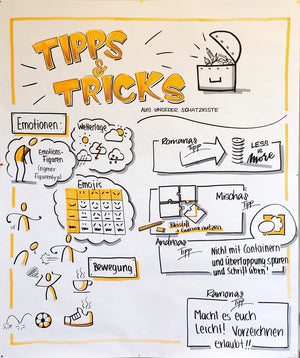 TIPPS
&
TRICKS
AUS UNSERER SCHATZKISTE
Emotionen:
Wetterlage
Emotions-
Figuren
(eigener
Figurentyp)
Emojis
Bewegung
Romanas
Tipp
LESS
is
more
Mischas
Tipp
Bleistift
+ Gummi nutzen
Andreas
Tipp
Nicht mit Containern
und Überlappung sparen
und Schrift üben!
Ramonas
Tipp
Macht es euch
leicht! Vorzeichnen
erlaubt!!